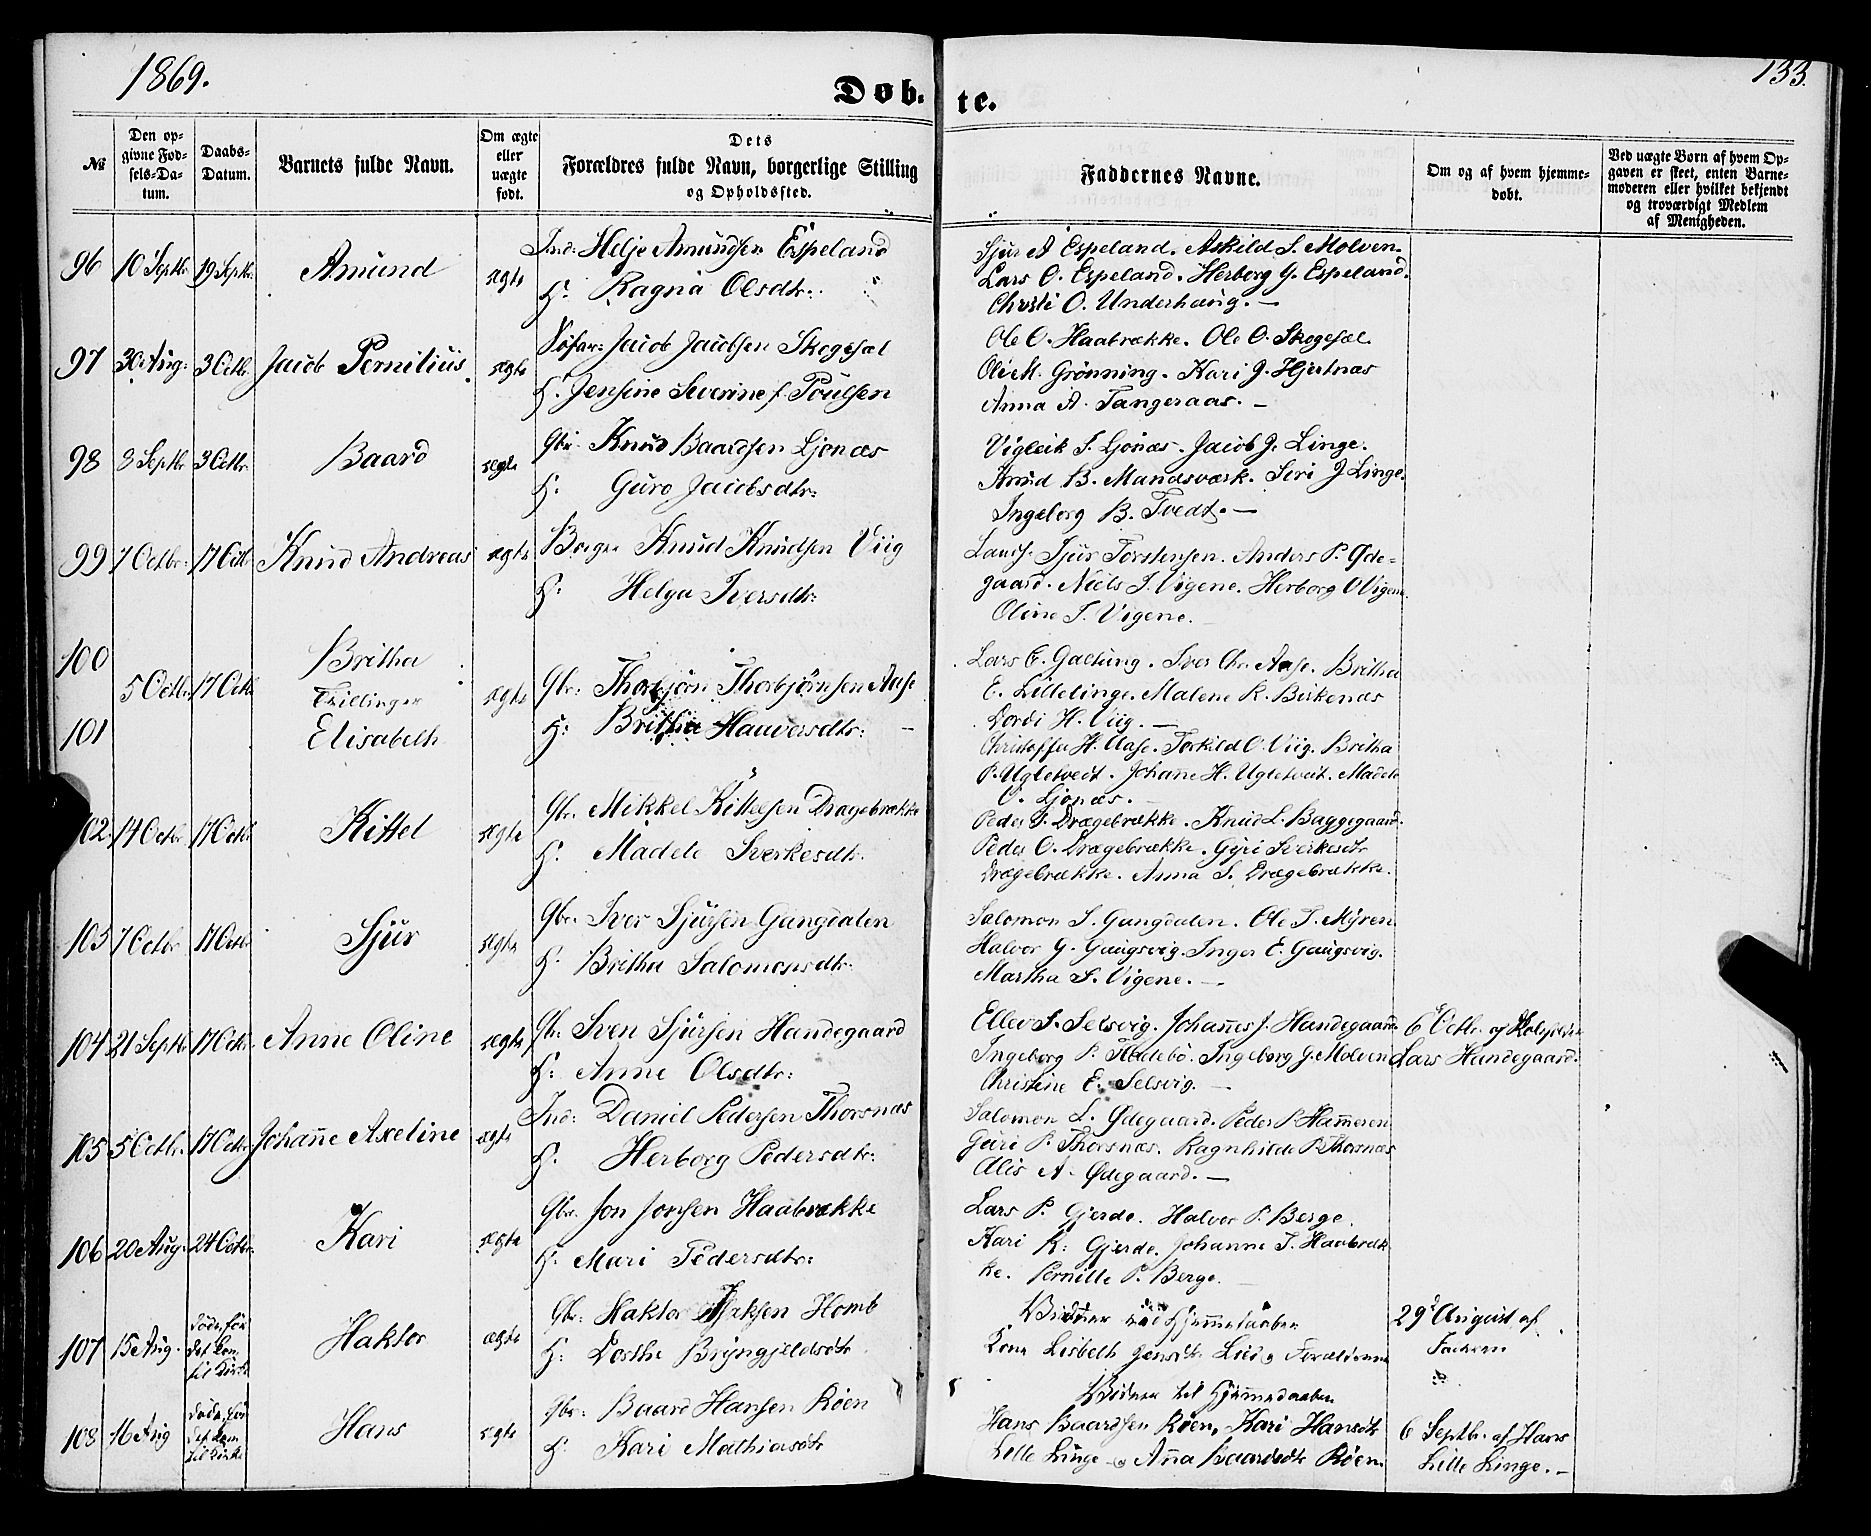 1869.
133.
Døb-
te.
№
Den op-
givne Fød-
sels-Da-
tum.
Daabs-
Datum.
Barnets fulde Navn.
Om ægte
eller
uægte
født.
Dets
Forældres fulde Navn, borgerlige Stilling
og Opholdssted.
Faddernes Navne.
Om og af hvem hjemme-
døbt.
Ved uægte Børn af hvem Op-
gaven er skeet, enten Barne-
moderen eller hvilket bekjendt
og troværdigt Medlem
af Menigheden.
96 10 Septbr. 19 Septbr. Amund ægte
Ind: Helje Amundsen Espeland
H: Ragna Olsdtr:
Sjur A Espeland. Askild S. Molven.
Lars O. Espeland. Herborg G. Espeland.
Christi O. Underhaug. —
97 30 Aug: 3 Octbr. Jacob Pernilius ægte
Jacob Jacobsen Skogesæl
H: Jensine Severine f. Poulsen
Ole O. Haabrække. Ole O. Skogesæl.
Ole M. Grönning. Kari J. Hjertnæs
Anna A. Tangeraas. —
98 8 Septbr 3 Octbr. Baard ægte
Gbr. Knud Baardsen Ljonæs
H: Guro Jacobsdtr:
Vigleik S. Ljonæs. Jacob J. Linge.
Knud B. Mundsværk. Siri J Linge.
Ingeborg B. Tvedt. —
99 7 Octbr: 17 Octbr Knud Andreas ægte
Knud Knudsen Viig
H: Helga Iversdtr:
Sjur Torstensen. Anders P. Øde-
gaard. Niels I. Vigene. Herborg O Vigene.
Oline I. Vigene.
100 Britha
5 Octbr. 17 Octbr Tvillinger ægte
101 Elisabeth
Gbr: Thorbjörn Thorbjörnsen Aase
H: Britha Hauversdtr: —
Lars E. Gactung. Iver Chr. Aase. Britha
E. Lillelinge. Malene K. Birkenæs
Dordi H. Viig. —
Christoffer H. Aase. Torkild O. Viig. Britha
P. Ugletvedt. Johanne H. Ugletvedt. Madele
O. Ljonæs. —
102 14 Octbr 17 Octbr Kittel ægte
Gbr. Mikkel Kittelsen Dragebrække
H: Madele Sverkesdtr.
Peder S. Drægebrække. Knud L. Byggegaard.
Peder O. Drægebrække. Gyri Sverkesdtr
Drægebrække. Anna S. Drægebrække.
103 7 Octbr 17 Octbr Sjur ægte
Gbr. Iver Sjursen Gangdalen
H: Britha Salomonsdtr.
Salomon S. Gangdalen. Ole T. Myren
Halvor G. Gaugsvig. Inger E. Gaugsvig.
Martha S. Vigene. —
104 21 Septbr 17 Octbr. Anne Oline ægte
Gbr. Sven Sjursen Handegaard
H: Anne Olsdtr:
Ellev S. Selsvig. Johannes J. Handegaard.
Ingeborg P. Fladebö. Ingeborg J. Molven
Christine E. Selsvig. —
6 Octbr. af
Lars Handegaard.
105 5 Octbr. 17 Octbr Johanne Axeline ægte
Ind: Daniel Pedersen Thorsnæs
H: Herborg Pedersdtr:
Salomon L. Ødegaard. Peder P. Hammeren
Guri P. Thorsnæs. Ragnhilde P. Thorsnæs
Alis A. Ødegaard. —
106 20 Aug. 24 Octbr. Kari ægte
Gbr. Jon Jonsen Haabrække
H: Mari Pedersdtr:
Lars P. Gjerde. Halvor P. Berge.
Kari K: Gjerde. Johanne T. Haabræk
ke. Pernille P. Berge.
107 15 Aug. döde för
det kom
til Kirke Haktor ægte
Gbr: Haktor Homb
H: Dorthe Bryngjeldsdtr
Vidner ved Hjemmedaaben
Kone Lisbeth Jensdtr. og Forældrene
29 August af
Faderen
108 16 Aug döde för
det kom
til Kirke Hans ægte
Gbr: Baard Hansen Röen
H: Kari Mathiasdtr
Vidner til Hjemmedaaben
Hans Baardsen Röen, Kari Hansdtr
Lille Linge og Anna Baardsdtr Röen.
6 Septbr. af Hans
Lille Linge. —